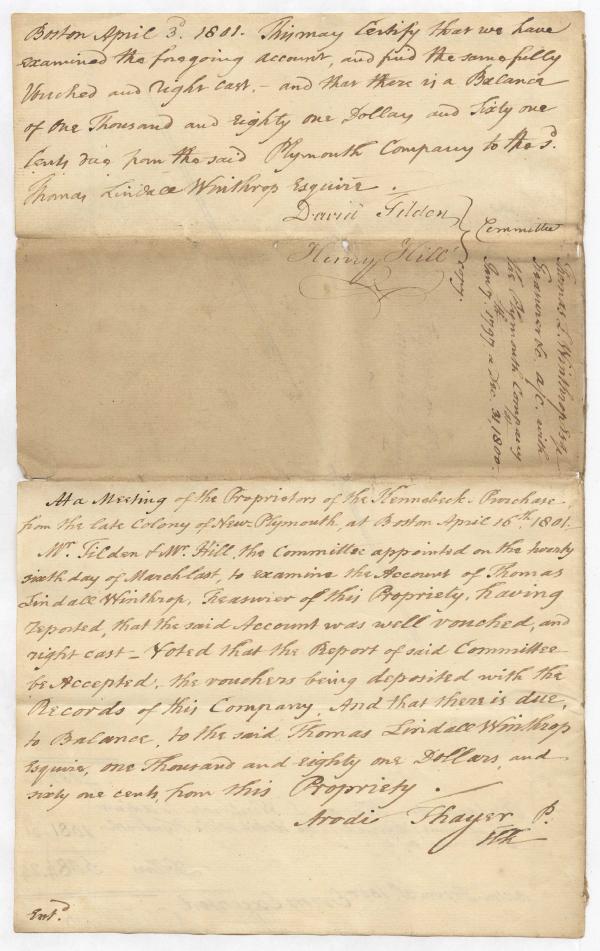 Boston April 3d. 1801. This may Certify that we have
examined the foregoing account, and find the same fully
Vouched and right Cast. - and that there is a Balance
of One Thousand and Eighty one Dollars and Sixty one
Cents due from the said Plymouth Company to the sd.
Thomas Lindall Winthrop Esquire.
David Tilden
Henry Hill
Committee
Thomas L. Winthrop Esqr.
Treasurer &c. a/c. with
the Plymouth Company
1797 a Dec. 31, 1800.
At a Meeting of the Proprietors of the Kennebeck Purchase
from the late Colony of New Plymouth, at Boston April 16th. 1801.
Mr. Tilden & Mr. Hill, the Committee appointed on the twenty
sixth day of March last, to examine the Account of Thomas
Lindall Winthrop, Treasurer of this Propriety, having
reported, that the said Account was well vouched, and
right cast - Voted that the Report of said Committee
be Accepted, the vouchers being deposited with the
Records of this Company, And that there is due,
to Balance, to the said Thomas Lindall Winthrop
Esquire, one Thousand and eighty one Dollars, and
sixty one cents, from this Propriety.
Arodi Thayer P.
Entd.